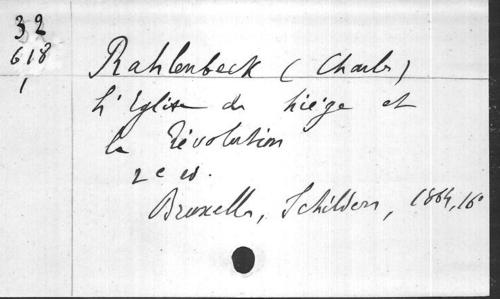 32
618
1
Rahlenbeck (Charles)
L'Eglise de Liége et
la Révolution
2e ed.
Bruxelles, Schilders, 1864, 16°